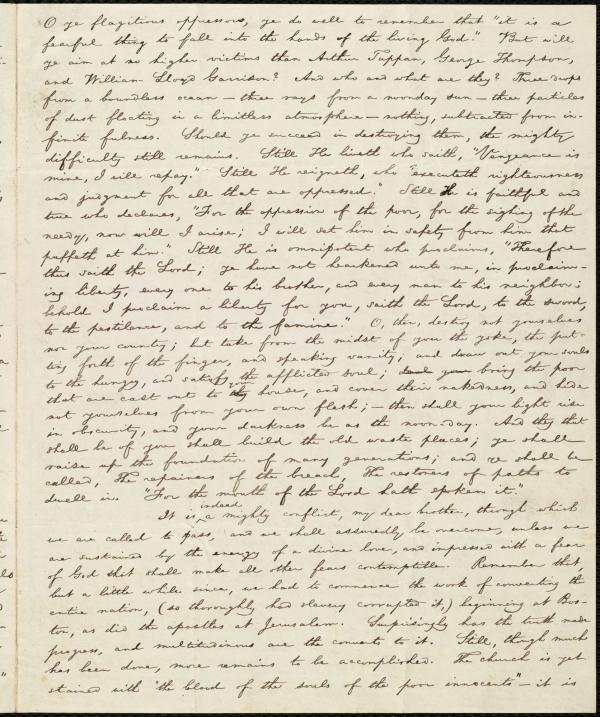 O ye flagitious oppressors, ye do well to remember that "it is a
fearful thing to fall into the hands of the living God." But will
ye aim at no higher victims than Arthur Tappan, George Thompson,
and William Lloyd Garrison? And who and what are they? Three drops
from a boundless ocean — three rays from a noonday sun — three particles
of dust floating in a limitless atmosphere — nothing, subtracted from in-
finite fulness. Should ye succeed in destroying them, the mighty
difficulty still remains. Still He liveth who saith, "Vengeance is
mine, I will repay." Still He reigneth, who "executeth righteousness
and judgment for all that are oppressed." Still He is faithful and
true who declares, "For the oppression of the poor, for the sighing of the
needy, now will I arise; I will set him in safety from him that
puffeth at him." Still He is omnipotent who proclaims, "Therefore
thus saith the Lord; ye have not hearkened unto me, in proclaim-
ing liberty, every one to his brother, and every man to his neighbor:
behold I proclaim a liberty for you, saith the Lord, to the sword,
to the pestilence, and to the famine." O, then, destroy not yourselves
nor your country; but take from the midst of you the yoke, the put-
ting forth of the finger, and speaking vanity; and draw out your souls
to the hungry, and satisfy the afflicted soul; bring the poor
that are cast out to your house, and cover their nakedness, and hide
not yourselves from your own flesh; — then shall your light rise
in obscurity, and your darkness be as the noon-day. And they that
shall be of you shall build the old waste places; ye shall
raise up the foundation of many generations; and ye shall be
called, The repairers of the breach, The restorers of paths to
dwell in. "For the mouth of the Lord hath spoken it."
It is indeed a mighty conflict, my dear brother, through which
we are called to pass, and we shall assuredly be overcome, unless we
are sustained by the energy of a divine love, and impressed with a fear
of God that shall make all other fears contemptible. Remember that,
but a little while since, we had to commence the work of converting the
entire nation, (so thoroughly had slavery corrupted it,) beginning at Bos-
ton, as did the apostles at Jerusalem. Surprisingly has the truth made
progress, and multitudinous are the converts to it. Still, though much
has been done, more remains to be accomplished. The church is yet
stained with "the blood of the souls of the poor innocents" — it is